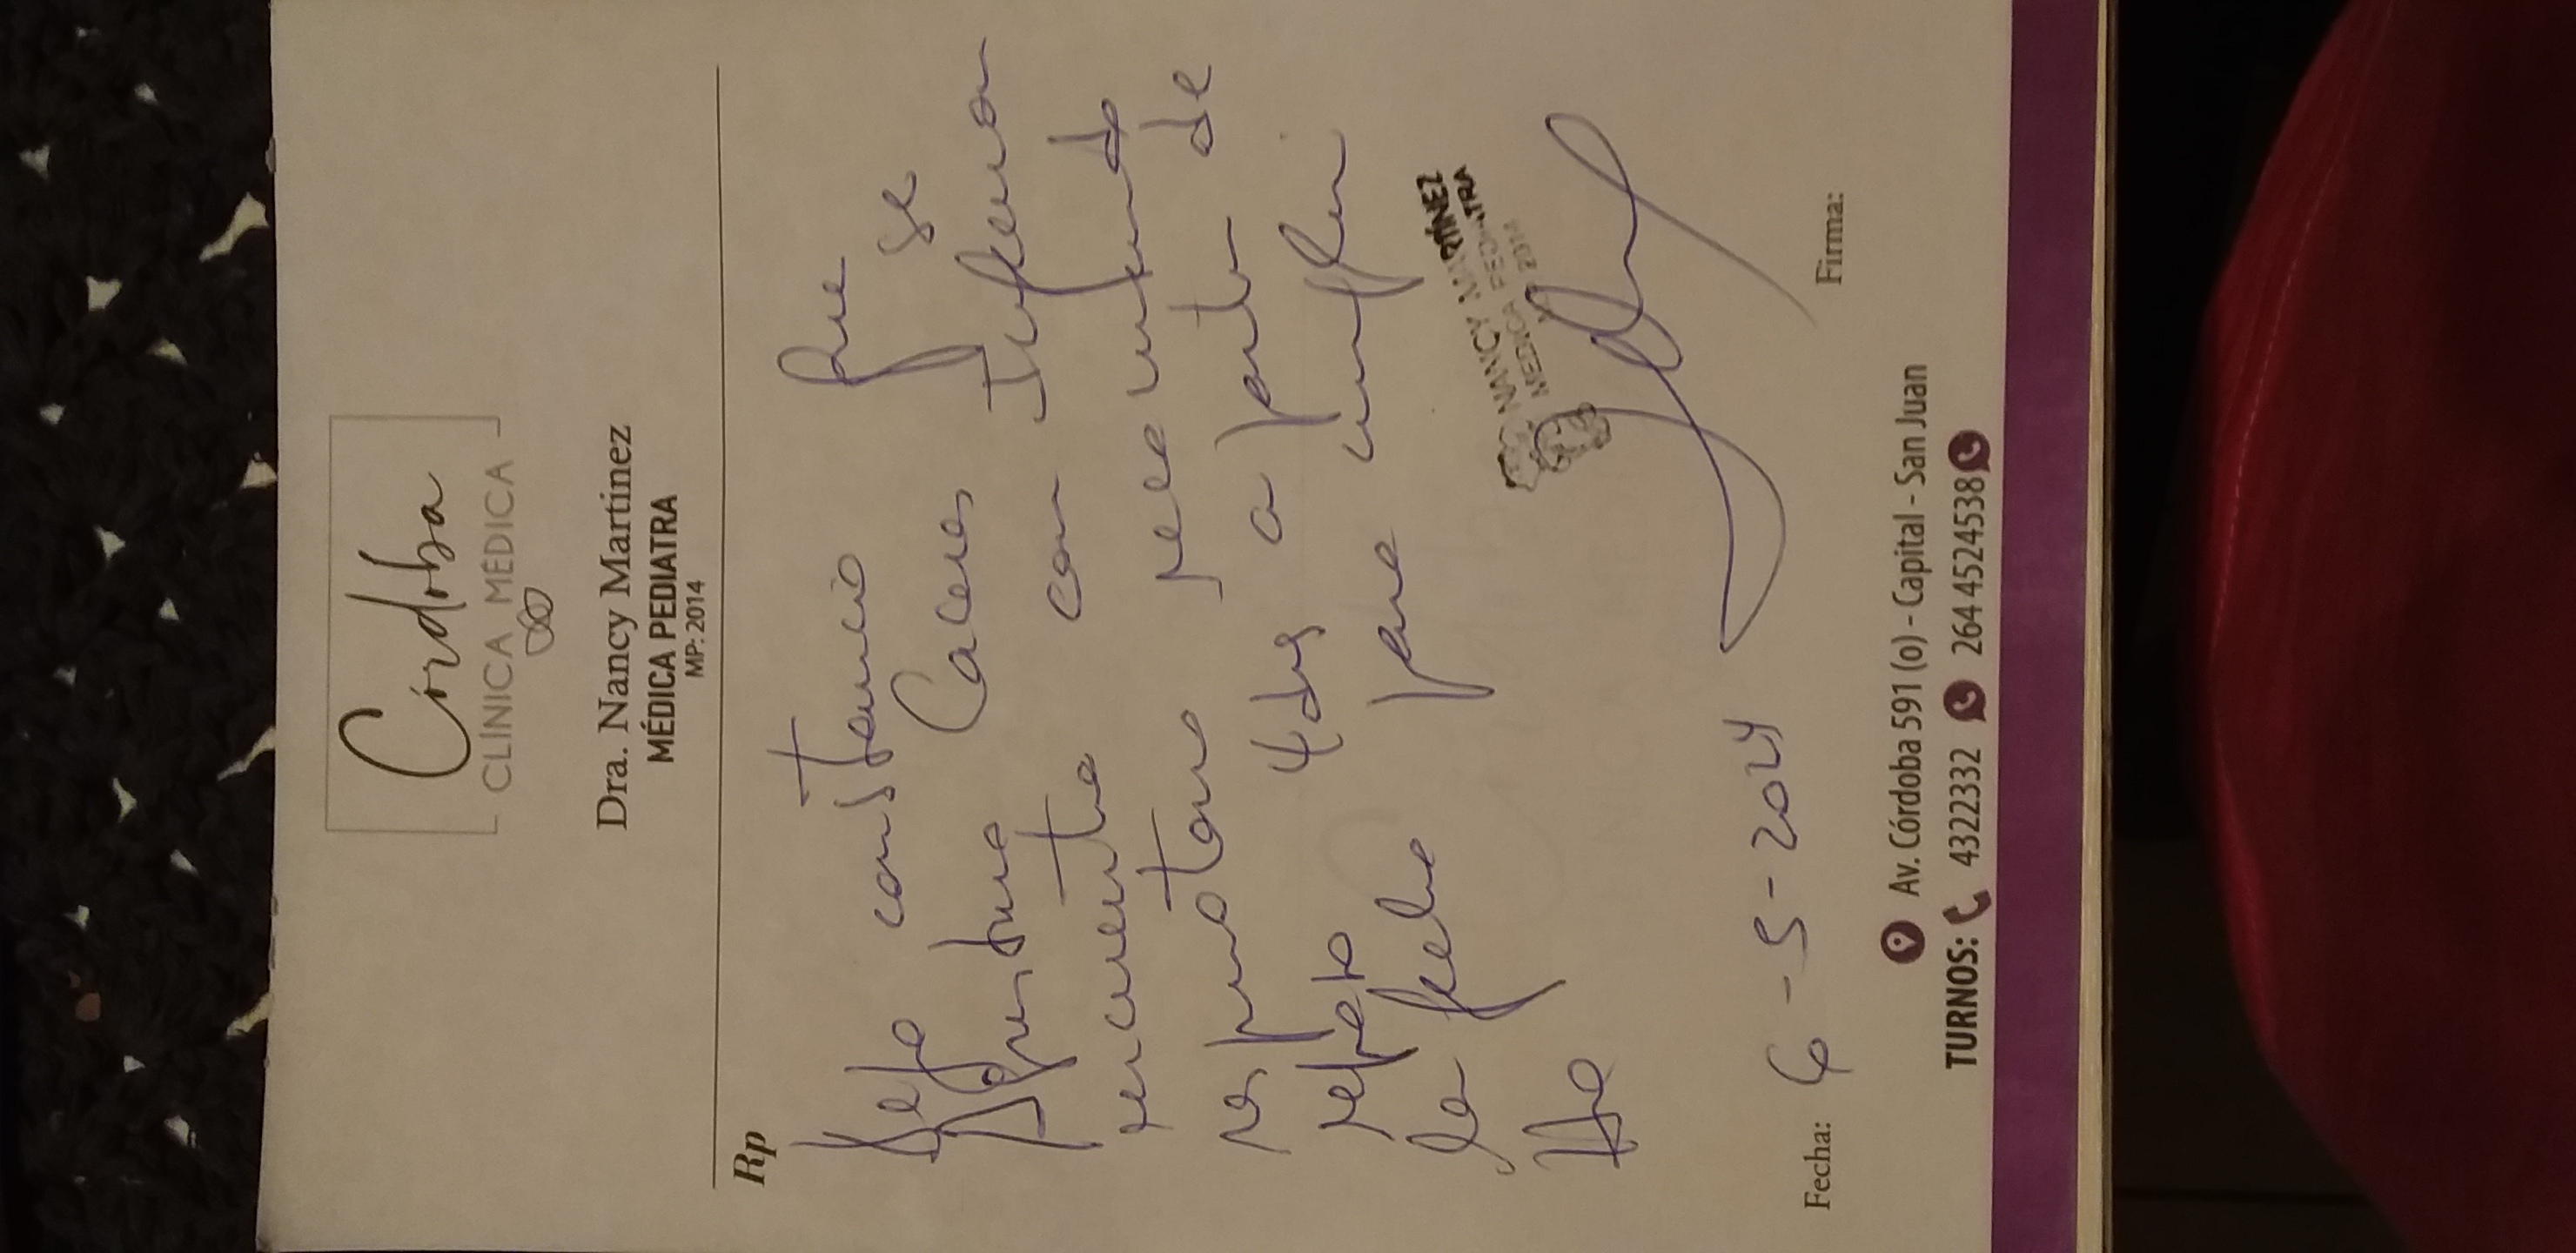 Córdoba
CLÍNICA MÉDICA
Dra. Nancy Martinez
MÉDICA PEDIATRA
MP: 2014
Rp
Dejo constancia que se
Caceres se
encuentra con Infeccion
respiratoria recomendando
reposo 4 ds a partir de
la fecha para cumplir
NANCY MARTÍNEZ
MEDICA PEDIATRA
2014
Fecha: 6-5-2024
Firma:
Av. Córdoba 591 (o) - Capital - San Juan
TURNOS: 4322332 264 4524538